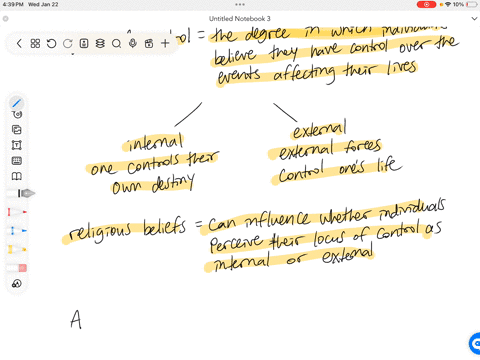 4:39 PM Wed Jan 22
10%
Untitled Notebook 3
= the degree in which
believe they have control over the
events affecting their lives
internal
one controls their
own destiny
external
external forces
control one's life
religious beliefs = can influence whether individuals
perceive their locus of control as
internal or external
A